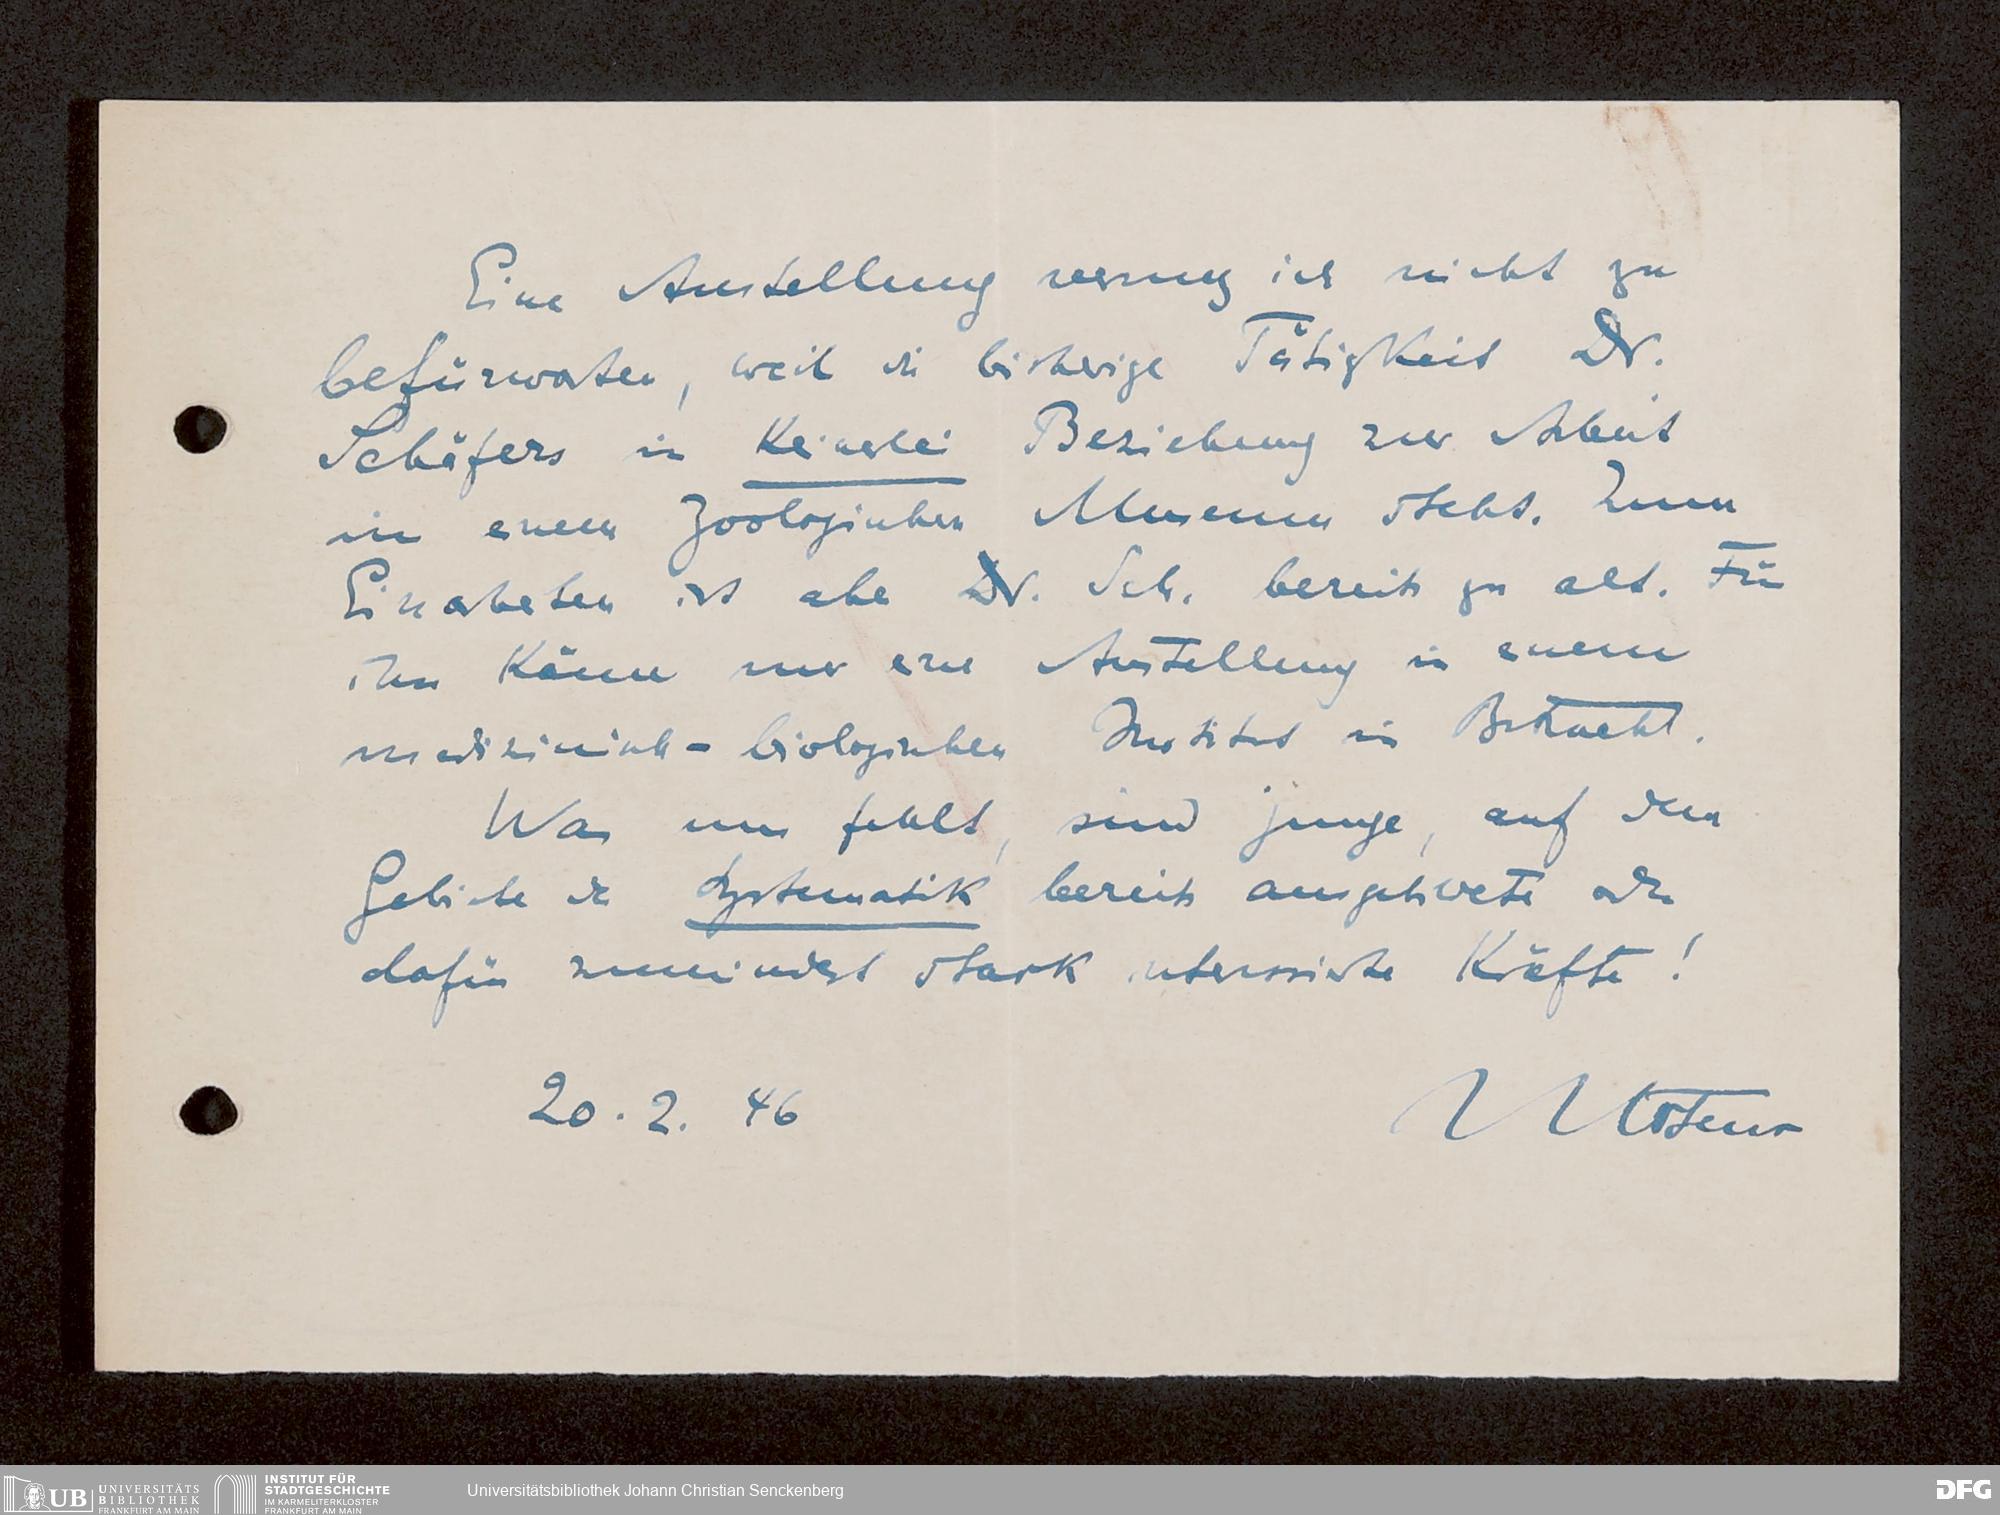 Eine Anstellung vermag ich nicht zu
befürworten, weil die bisherige Tätigkeit Dr.
Schäfers in keinerlei Beziehung zur Arbeit
in einem Zoologischen Museum steht. Zum
Einarbeiten ist aber Dr. Sch. bereits zu alt. Für
ihn käme nur eine Anstellung in einem
medizinisch-biologischen Institut in Betracht.
Was uns fehlt, sind junge, auf dem
Gebiete der Systematik bereits ausgebildete oder
dafür zumindest stark interessierte Kräfte!
20.2.46
Mertens
UB UNIVERSITÄTS
BIBLIOTHEK
FRANKFURT AM MAIN
INSTITUT FÜR
STADTGESCHICHTE
IM KARMELITERKLOSTER
FRANKFURT AM MAIN
Universitätsbibliothek Johann Christian Senckenberg
DFG